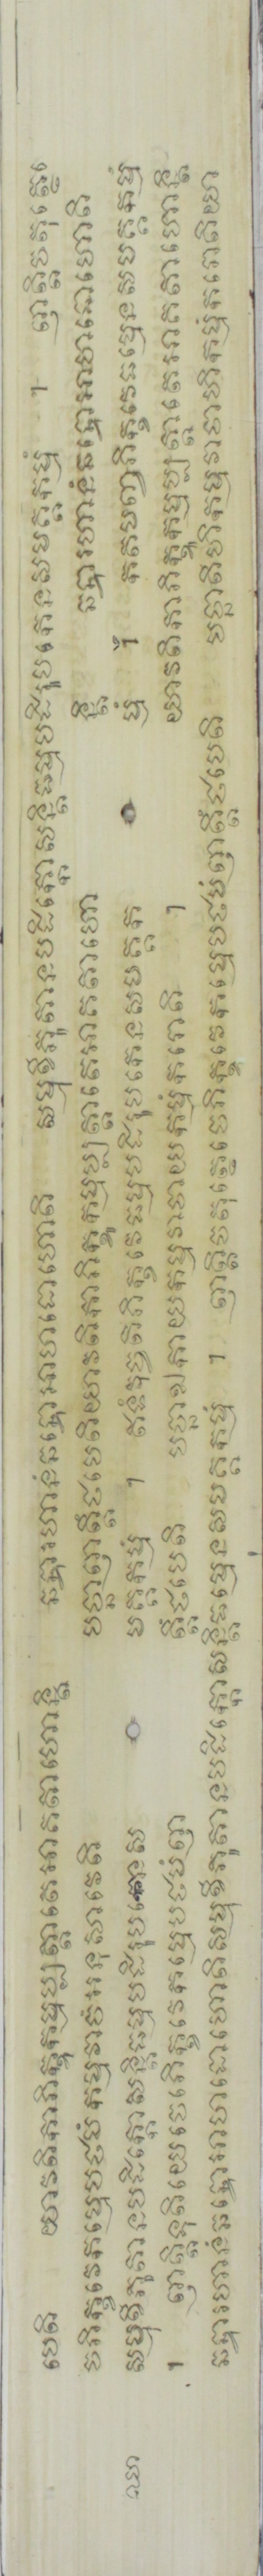 បេតិ យាវតិកាភិក្ខូកម្មប្បត្តាតេអាគតាហោន្តិ ឆន្ទារហានំឆន្ទោអាហដោហោតិ សម្មុខីភូតានបដិក្កោសន្តិធម្មបដិរូបកេនសមគ្គកម្មំ ។ ញាត្តិចតុត្ថេ
ចេភិក្ខវេកម្មេបឋមំកម្មវាចំអនុសាវេតិ បច្ឆាញត្តឹថបេតិយាវតិកាភិក្ខូកម្មប្បត្តាតេអាគតាហោ ន្តិ ឆន្ទារហានំឆន្ទោអាហដោហោតិ
ឈា សម្មុខីភូតានបដិក្កោសន្តិធម្មបដិរូបកេនស មគ្គកម្មំ ។ ឥទំវុច្ចតិភិក្ខវេធម្មបដិរូបកេនសមគ្គក ម្មំ ។ កតមញ្ចភិក្ខវេធម្មេនសមគ្គកម្មំ
។ ញាត្តិទុតិយេចេភិក្ខវេកម្មេបឋមំញ ត្តឹថបេតិ បច្ឆាឯកាយកម្មវាចាយកម្មំករោតិ ។ យាវតិកាភិក្ខូកម្មប្បត្តាតេអាគតាហោន្តិ
ឆន្ទារហានំឆន្ទោអាហដោហោតិសម្មុខីភូតានបដិក្កោសន្តិធម្មេនសមគ្គកម្មំ ។ ញាត្តិចតុត្ថេចេភិក្ខវេកម្មេបឋមំញត្តឹថបេតិ បច្ឆាតីហិកម្មវាចាហិកម្មំករោតិយា